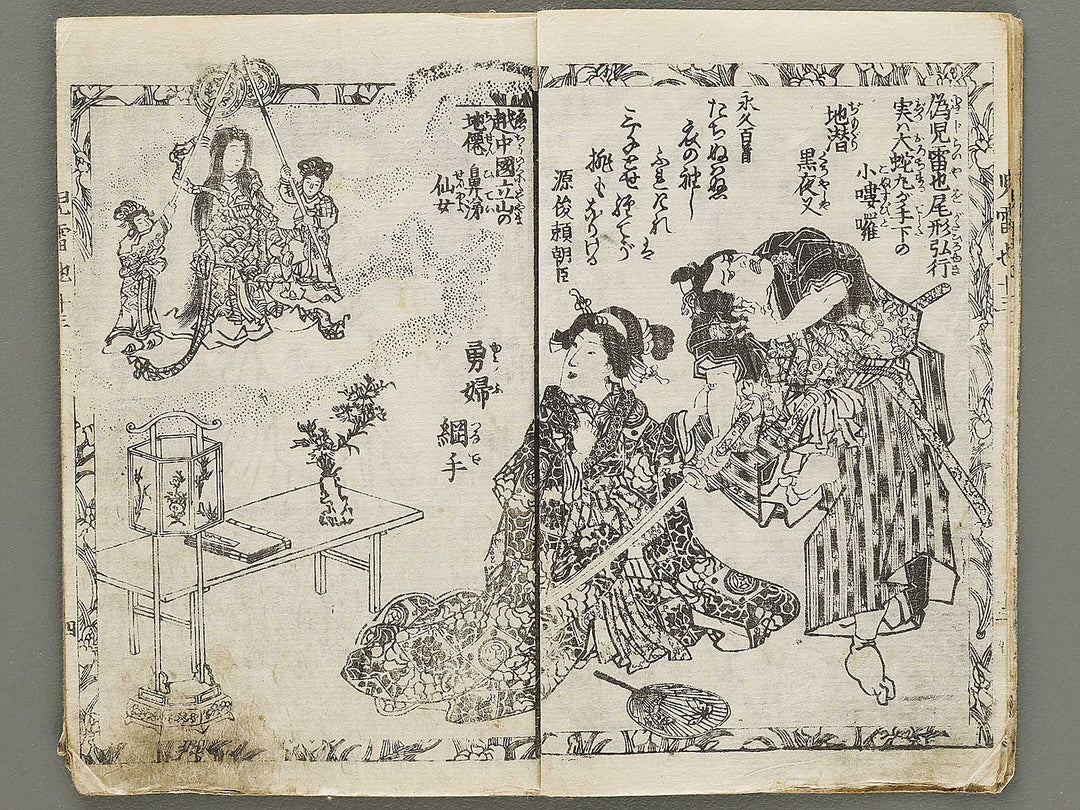 偽児雷也尾形弘行
実ハ大蛇丸が手下の
小嘍囉
地潜
黒夜叉
永久百首
たちぬはぬ
衣の袖し
ふれたれは
三千とせ経てそ
桃もなりける
源俊頼朝臣
越中國立山の
地僊
鼻涕
仙女
勇婦
綱手